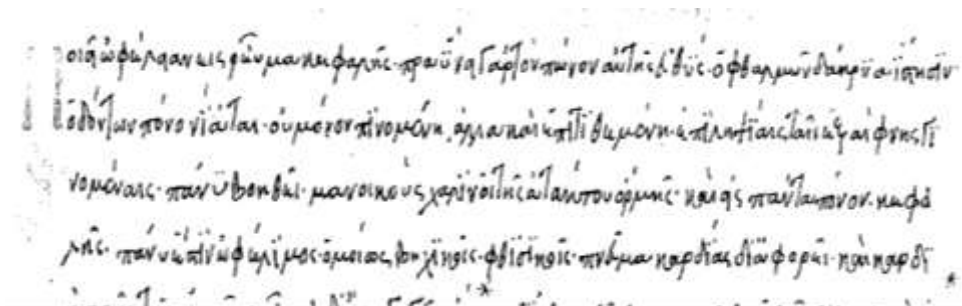 κεφαλῆς· πραΰνει γὰρ τὸν πόνον αὐτῆς εὐθύς· ὀφθαλμῶν δάκρυα ἵστησιν
ὀδόντων πόνον ἰᾶται· οὐ μόνον πινομένη, ἀλλὰ καὶ ἐπιτιθεμένη· ἐπιληψίαις ταῖς ἐξαίφνης γι
νομέναις· πάνυ βοηθεῖ· μανικοὺς χαλινοῖ τῆς ἀτάκτου ὁρμῆς· καὶ εἰς πάντα πόνον κεφα
λῆς· πάνυ ἐστὶν ὠφέλιμος· ὁμοίως βηχικοῖς· φθισικοῖς· πνεῦμα καρδίας διαφορεῖ· καὶ καρδι